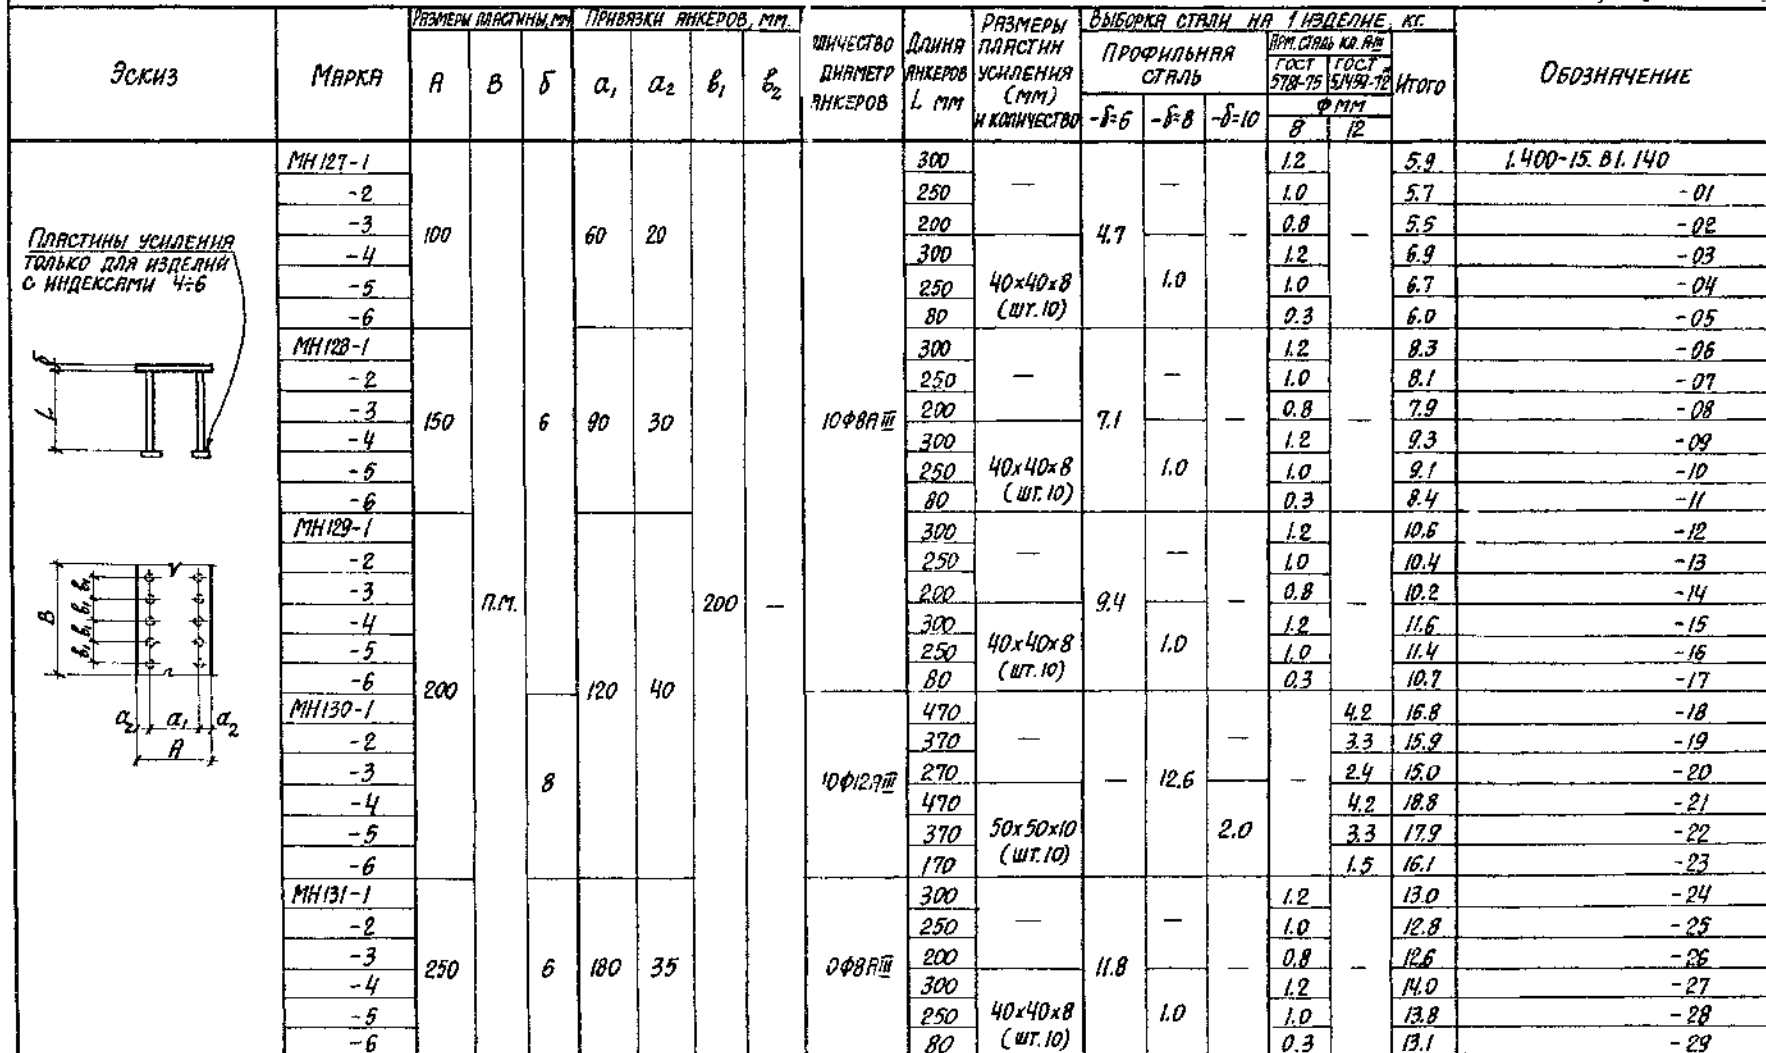 Эскиз
Марка
Размеры пластины, мм
А В δ
Привязки анкеров, мм.
a₁ a₂ в₁ в₂
диаметр анкеров
Длина анкеров L мм
Размеры пластин усиления (мм) и количество
Выборка стали на 1 изделие, кг.
Профильная сталь
-δ=6 -δ=8 -δ=10
Арм. сталь кл. А-III
ГОСТ 5781-75
Ф мм
8 12
Итого
Обозначение
Пластины усиления
только для изделий
с индексами 4÷6
δ
L
В
в₁ в₁ в₁ в₁
a₂ a₁ a₂
А
П.М. 200 —
МН127-1 100 6 60 20 10Ф8АIII 300 — 4.7 — — 1.2 — 5.9 1.400-15. В1. 140
-2 250 1.0 5.7 -01
-3 200 0.8 5.5 -02
-4 300 40x40x8 (шт.10) 1.0 1.2 6.9 -03
-5 250 1.0 6.7 -04
-6 80 0.3 6.0 -05
МН128-1 150 90 30 300 — 7.1 — — 1.2 — 8.3 -06
-2 250 1.0 8.1 -07
-3 200 0.8 7.9 -08
-4 300 40x40x8 (шт.10) 1.0 1.2 9.3 -09
-5 250 1.0 9.1 -10
-6 80 0.3 8.4 -11
МН129-1 200 120 40 300 — 9.4 — — 1.2 — 10.6 -12
-2 250 1.0 10.4 -13
-3 200 0.8 10.2 -14
-4 300 40x40x8 (шт.10) 1.0 1.2 11.6 -15
-5 250 1.0 11.4 -16
-6 80 0.3 10.7 -17
МН130-1 8 10Ф12АIII 470 — — 12.6 — — 4.2 16.8 -18
-2 370 3.3 15.9 -19
-3 270 2.4 15.0 -20
-4 470 50x50x10 (шт.10) 2.0 4.2 18.8 -21
-5 370 3.3 17.9 -22
-6 170 1.5 16.1 -23
МН131-1 250 6 180 35 0Ф8АIII 300 — 11.8 — — 1.2 — 13.0 -24
-2 250 1.0 12.8 -25
-3 200 0.8 12.6 -26
-4 300 40x40x8 (шт.10) 1.0 1.2 14.0 -27
-5 250 1.0 13.8 -28
-6 80 0.3 13.1 -29